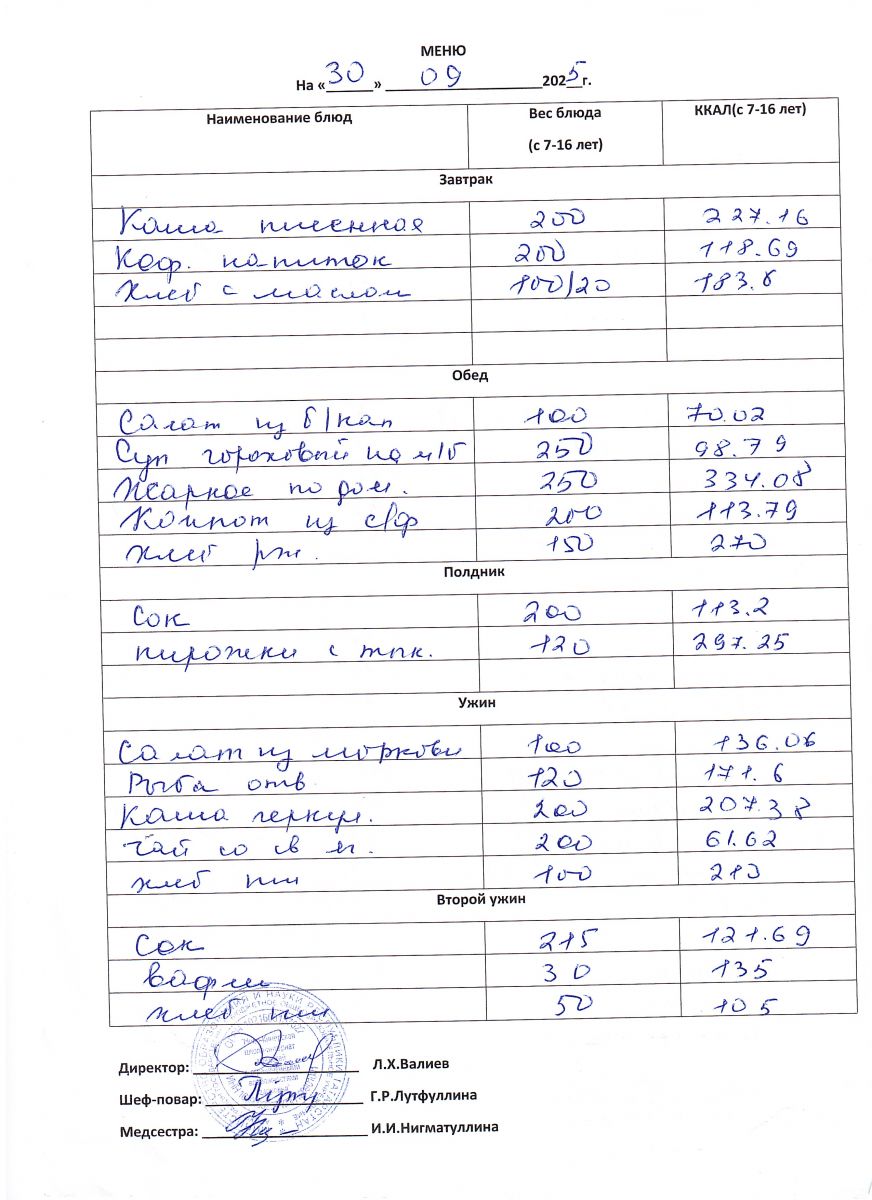 МЕНЮ
На «30» 09 2025г.
Наименование блюд Вес блюда (с 7-16 лет) ККАЛ(с 7-16 лет)
Завтрак
Каша пшенная 200 227.16
Коф. напиток 200 118.69
Хлеб с маслом 100/20 183.6
Обед
Салат из б/кап 100 70.02
Суп гороховый на м/б 250 98.79
Жаркое по дом. 250 334.08
Компот из с/ф 200 113.79
хлеб рж. 150 270
Полдник
Сок 200 113.2
пирожки с 120 297.25
Ужин
Салат из моркови 100 136.06
Рыба отв 120 171.6
Каша геркул. 200 207.38
Чай со св 200 61.62
хлеб пш 100 213
Второй ужин
Сок 215 121.69
вафли 30 135
хлеб пш 50 105
Директор: Л.Х.Валиев
Шеф-повар: Г.Р.Лутфуллина
Медсестра: И.И.Нигматуллина